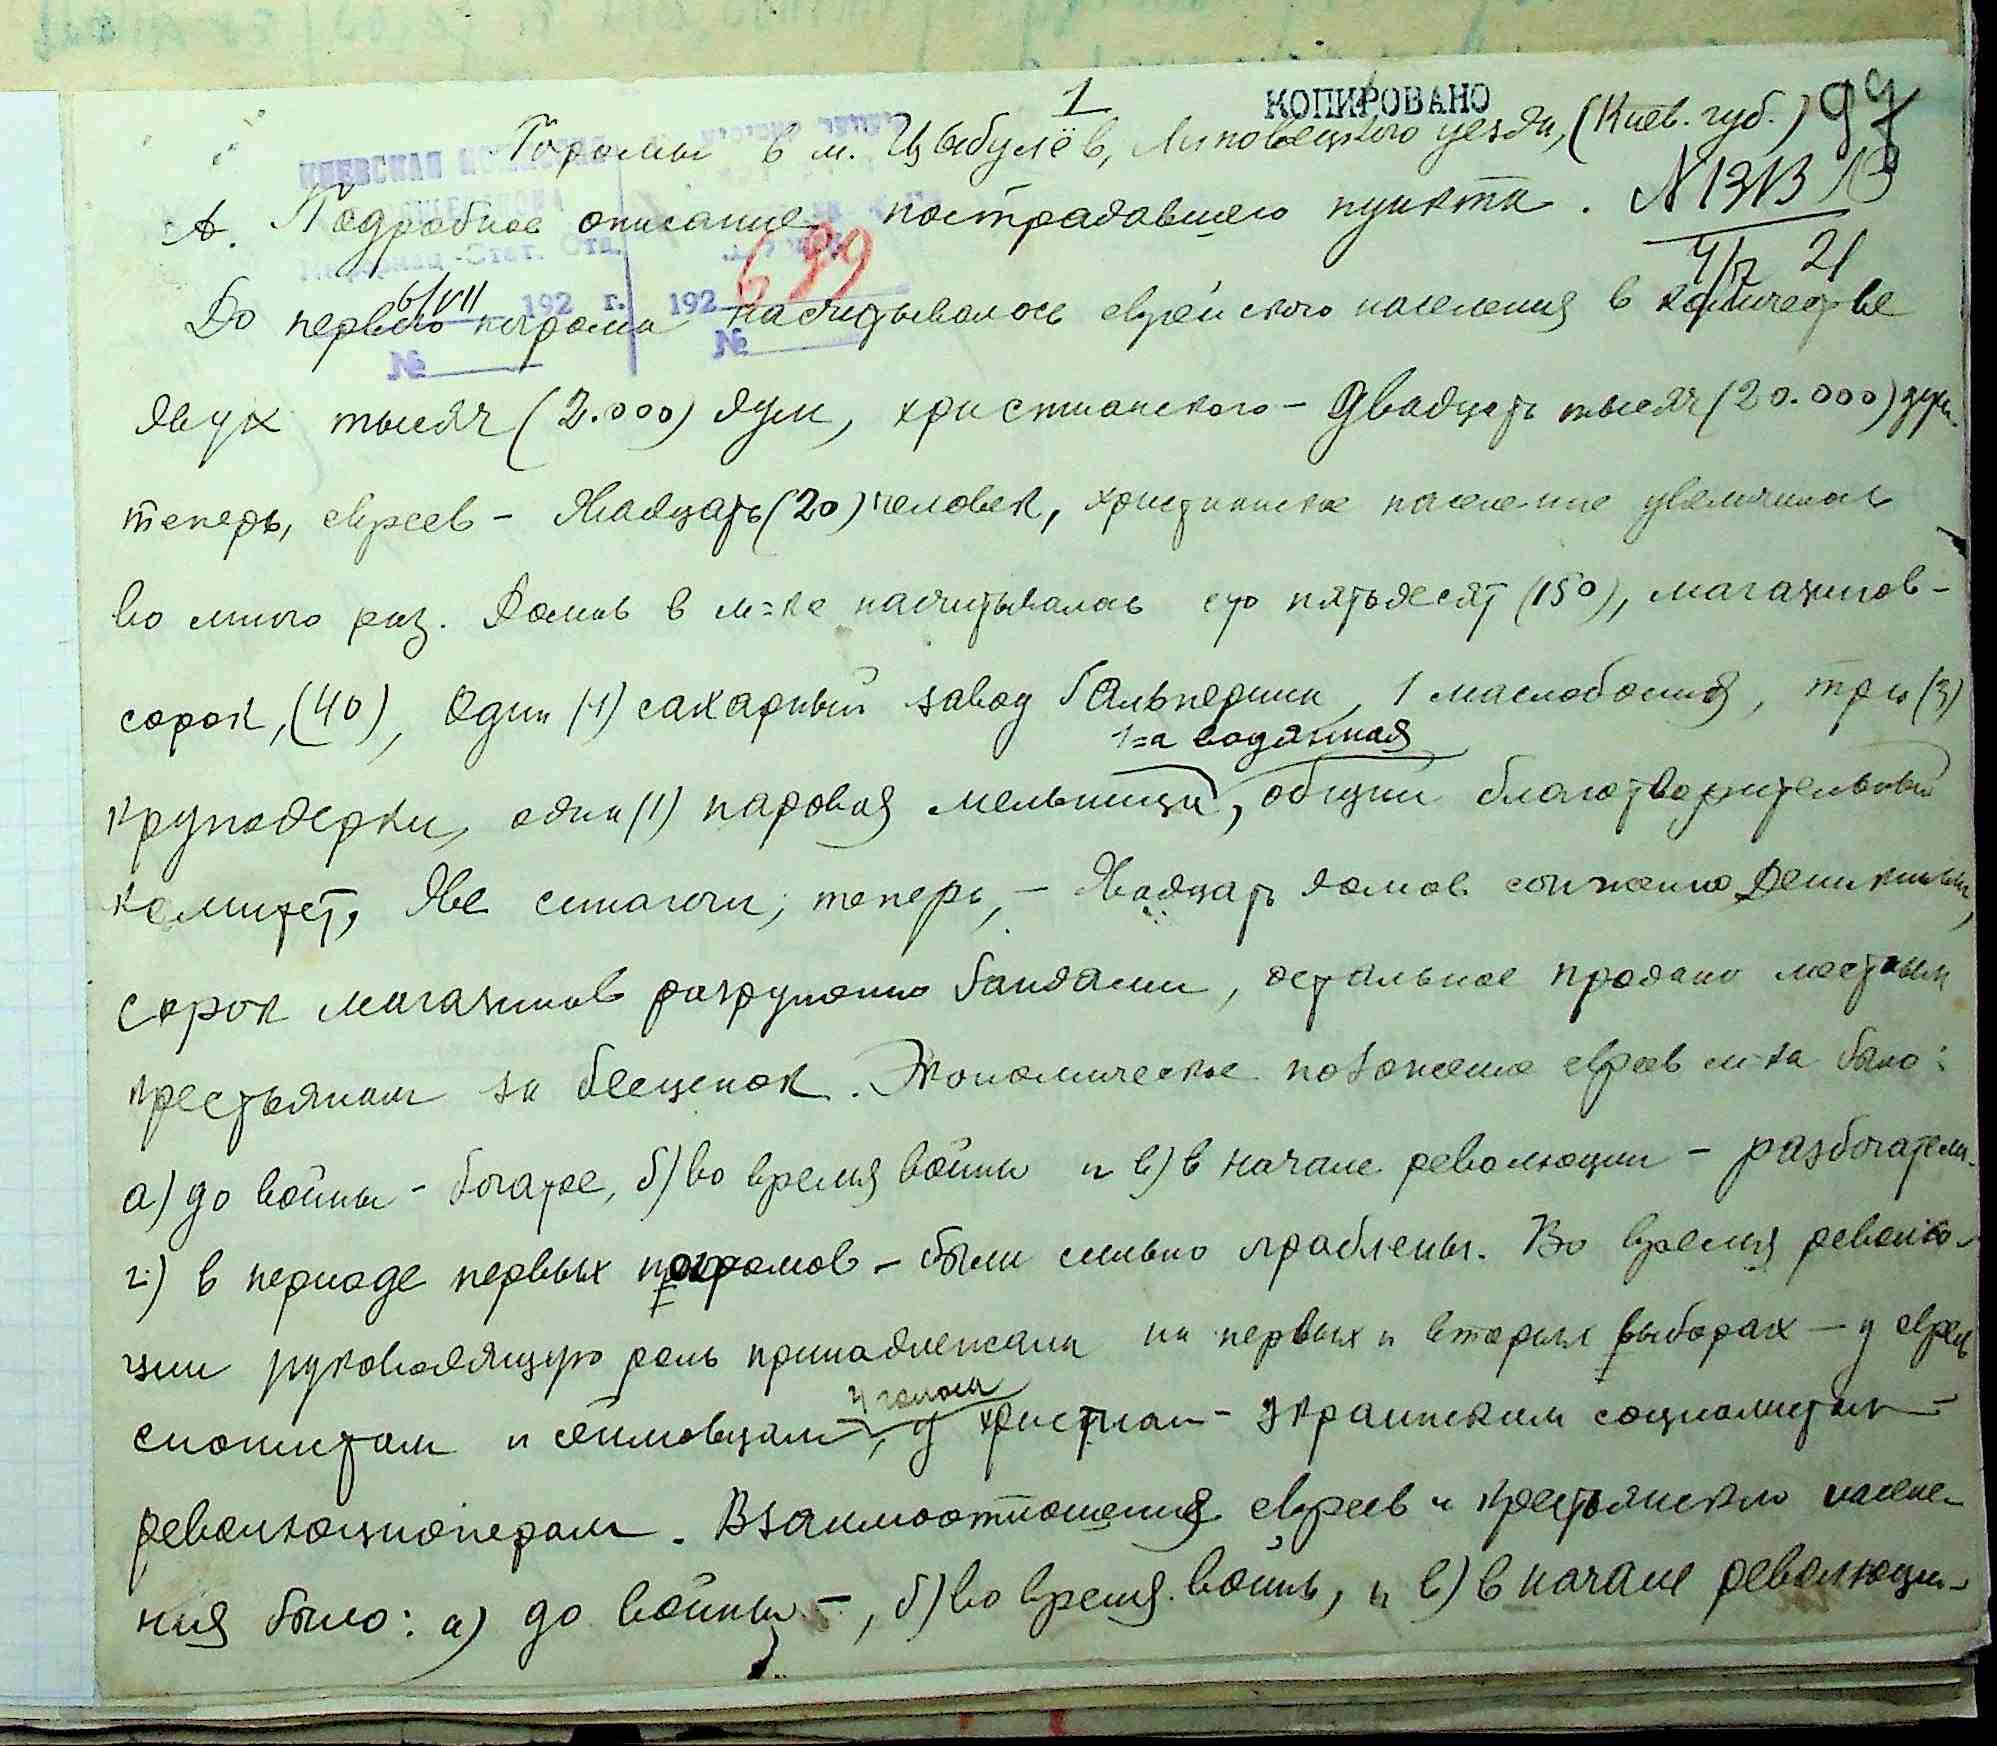 1
КОПИРОВАНО
97
Погромы в м. Цыбулёв, Липовецкого уезда, (Киев. губ.)
N 1313
А. Подробное описание пострадавшего пункта.
4/ 21
699
6/VII 192 г. 192
№ №
До первого погрома насчитывалось еврейского населения в количестве
двух тысяч (2.000) душ, христианского – двадцать тысяч (20.000) душ.
теперь, евреев – двадцать (20) человек, христианское население увеличилось
во много раз. Домов в м=ке насчитывалось сто пятьдесят (150), магазинов –
сорок, (40), один (1) сахарный завод Гальперина, 1 маслобойня, три (3)
1=а водянная
круподерки, одна (1) паровая мельница, общий благотворительный
комитет, две синагоги; теперь, – двадцать домов сожжено Деникиным,
сорок магазинов разрушено бандами, остальное продано местным
крестьянам за бесценок. Экономическое положение евреев м-ка было:
а) до войны – богатое, б) во время войны и в) в начале революции – разбогатели.
г) в периоде первых погромов – были сильно ограблены. Во время револю-
ции руководящую роль принадлежали на первых и вторых выборах – у евреев
4 голоса
сионистам и сеймовцам, у христиан – украинским социалистам-
революционерам. Взаимоотношения евреев и крестьянского населе-
ния было: а) до войны –, б) во время войны, и в) в начале революции –